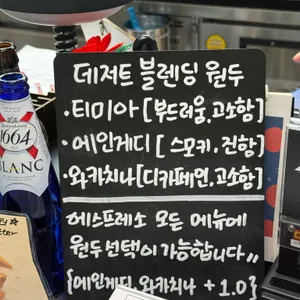 데저트 블렌딩 원두
·티미아 [부드러움,고소함]
·에인게디 [스모키, 진함]
·와카치나 [디카페인, 고소함]
에스프레소 모든 메뉴에
원두선택이 가능합니다,,
{에인게디, 와카치나 + 1.0}
1664
BLANC